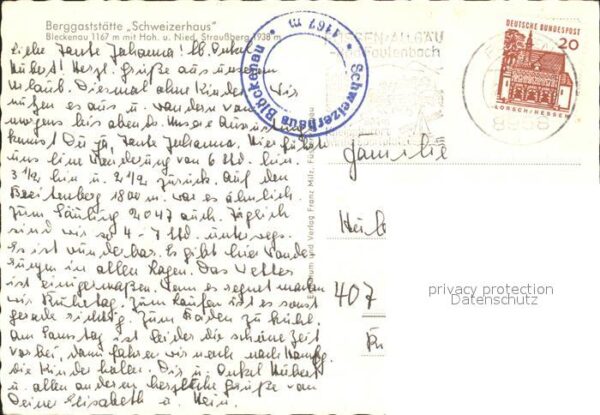 Berggaststätte „Schweizerhaus"
Bleckenau 1167 m mit Hoh. u. Nied. Straußberg 1938 m
Liebe Tante Johanna! Lb. Onkel
Hubert! Herzl. Grüße aus unserem
Urlaub. Diesmal ohne Kinder. Wir
nützen es aus u. wandern von
morgens bis abends. Unsere Ausrüstung
kennst Du ja, Tante Johanna. Hier führt
uns eine Wanderung von 6 Std. hin.
3 1/2 hin u. 2 1/2 zurück. Auf den
Breitenberg 1800 m. war es ähnlich.
Zum Säuling 2047 auch. Täglich
sind wir so 4 - 7 Std. unterwegs.
Es ist wunderbar. Es gibt hier Wande
rungen in allen Lagen. Das Wetter
ist einigermaßen. Wenn es regnet machen
wir Ruhetag. Zum Laufen ist es sonst
gerade richtig. Zum Baden zu kühl.
Am Samstag ist leider die schöne Zeit
vorbei, dann fahren wir nach
die Kinder holen. Dir u. Onkel Hubert
u. allen anderen herzliche Grüße von
Deine Elisabeth u. Hein.
Schweizerhaus Bleckenau 1167 m
FÜSSEN-ALLGÄU
Faulenbach
8958
DEUTSCHE BUNDESPOST
20
LORSCH/HESSEN
und Verlag Franz Milz, Fü
Familie
407
privacy protection
Datenschutz